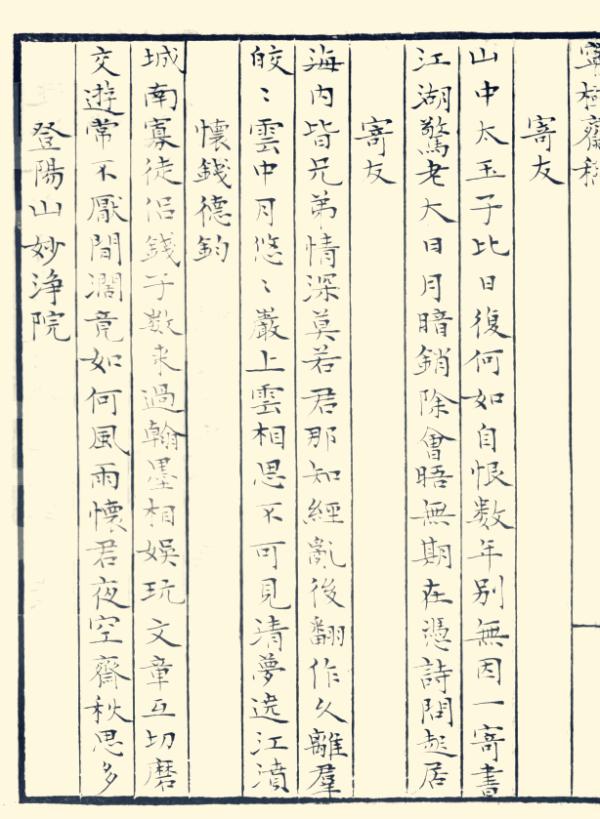 寧極齋稿
寄友
山中太玉子比日復何如自恨数年别無因一寄書
江湖驚老大日月暗銷除會晤無期在憑詩問起居
寄友
海内皆兄弟情深莫若君那知經亂後翻作久離羣
皎〻雲中月悠〻巖上雲相思不可見清夢遶江濆
懷錢德鈞
城南寡徒侣錢子数来過翰墨相娛玩文章互切磨
交遊常不厭間濶竟如何風雨懷君夜空齋秋思多
登陽山妙浄院